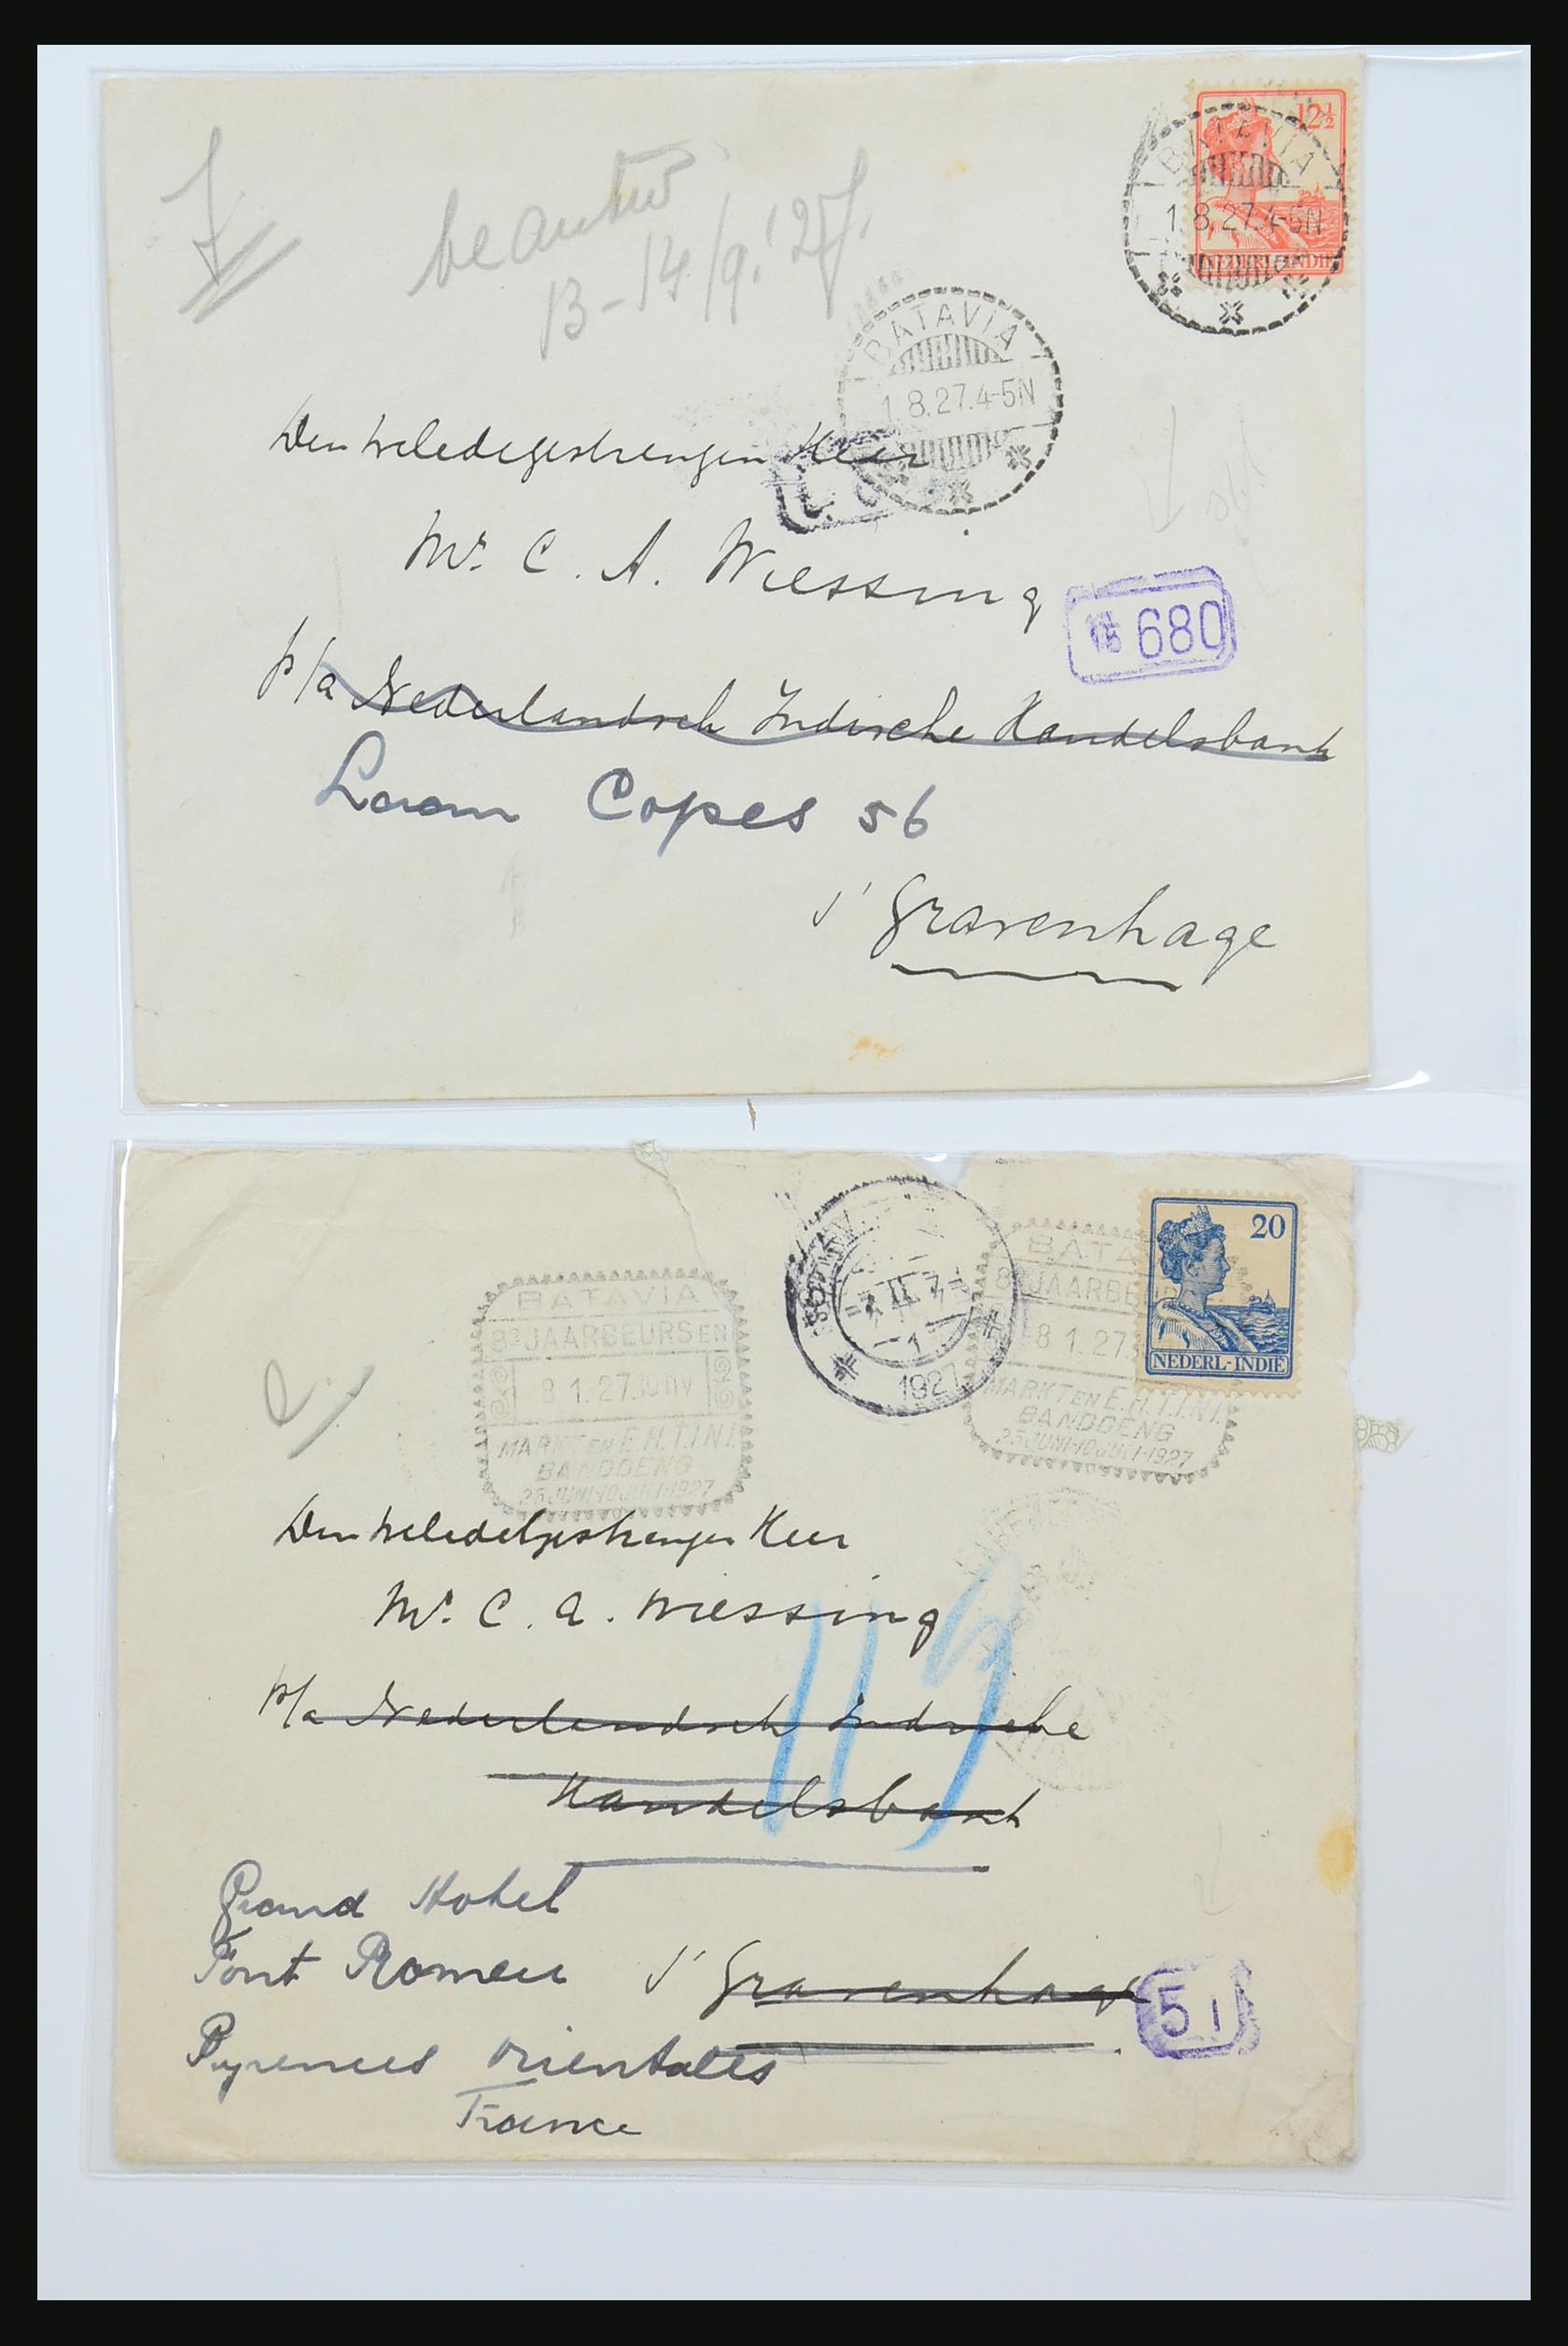 12½
NEDERL-INDIË
BATAVIA
1.8.27.4-5N
beantw
13-14/9.'27.
BATAVIA
1.8.27.4-5N
Den weledelgestrengen Heer
Mr. C. A. Wiessing
680
p/a Nederlandsch Indische Handelsbank
Laan Copes 56
s' Gravenhage
20
NEDERL-INDIË
BATAVIA
8e JAARBEURS EN
8 1.27.
MARKT EN E.H.T.I.N.I.
BANDOENG
25 JUNI-10 JULI-1927
1927
BATA
8e JAARBEU
8 1.27.
MARKT EN E.H.T.I.N.I.
BANDOENG
25 JUNI-10 JULI-1927
Den weledelgestrengen Heer
Mr. C. A. Wiessing
p/a Nederlandsch Indische
Handelsbank
Grand Hotel
Font Romeu s' Gravenhage
51
Pyrenees Orientales
France